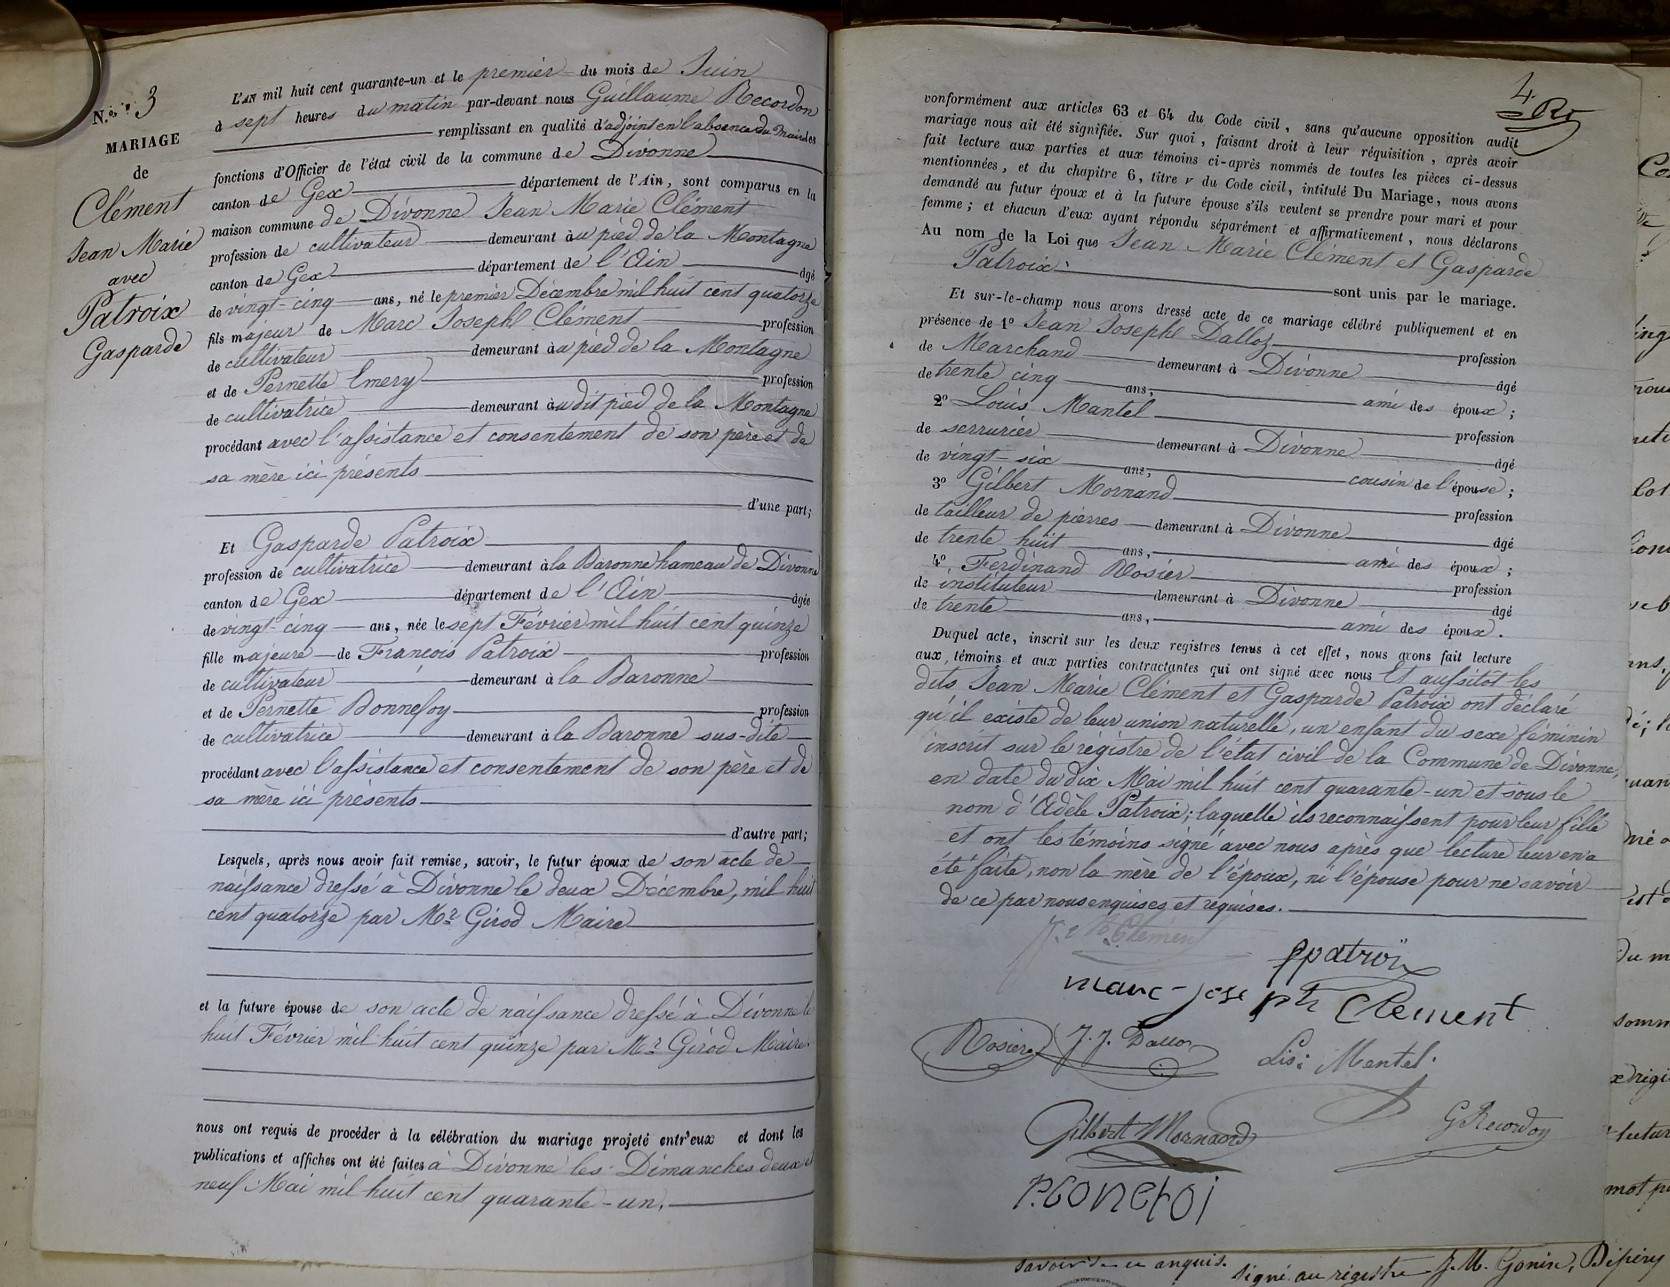 N.º 3
MARIAGE
de
Clément
Jean Marie
avec
Patroix
Gasparde
L'AN mil huit cent quarante-un et le premier du mois de Juin
à sept heures du matin par-devant nous Guillaume Recordon
remplissant en qualité d'adjoint en l'absence du Maire les
fonctions d'Officier de l'état civil de la commune de Divonne
canton de Gex département de l'Ain, sont comparus en la
maison commune de Divonne Jean Marie Clément
profession de cultivateur demeurant au pied de la Montagne
canton de Gex département de l'Ain âgé
de vingt-cinq ans, né le premier Décembre mil huit cent quatorze
fils majeur de Marc Joseph Clément profession
de cultivateur demeurant au pied de la Montagne
et de Pernette Emery profession
de cultivatrice demeurant au dit pied de la Montagne
procédant avec l'assistance et consentement de son père et de
sa mère ici présents
d'une part;
Et Gasparde Patroix
profession de cultivatrice demeurant à la Baronne hameau de Divonne
canton de Gex département de l'Ain âgée
de vingt-cinq ans, née le sept Février mil huit cent quinze
fille majeure de François Patroix profession
de cultivateur demeurant à la Baronne
et de Pernette Bonnefoy profession
de cultivatrice demeurant à la Baronne sus-dite
procédant avec l'assistance et consentement de son père et de
sa mère ici présents
d'autre part;
Lesquels, après nous avoir fait remise, savoir, le futur époux de son acte de
naissance dressé à Divonne le deux Décembre, mil huit
cent quatorze par Mr Girod Maire
et la future épouse de son acte de naissance dressé à Divonne le
huit Février mil huit cent quinze par Mr Girod Maire.
nous ont requis de procéder à la célébration du mariage projeté entr'eux et dont les
publications et affiches ont été faites à Divonne les Dimanches deux et
neuf Mai mil huit cent quarante-un.
4
conformément aux articles 63 et 64 du Code civil, sans qu'aucune opposition audit
mariage nous ait été signifiée. Sur quoi, faisant droit à leur réquisition, après avoir
fait lecture aux parties et aux témoins ci-après nommés de toutes les pièces ci-dessus
mentionnées, et du chapitre 6, titre v du Code civil, intitulé Du Mariage, nous avons
demandé au futur époux et à la future épouse s'ils veulent se prendre pour mari et pour
femme; et chacun d'eux ayant répondu séparément et affirmativement, nous déclarons
Au nom de la Loi que Jean Marie Clément et Gasparde
Patroix
sont unis par le mariage.
Et sur-le-champ nous avons dressé acte de ce mariage célébré publiquement et en
présence de 1º Jean Joseph Dalloz profession
de Marchand demeurant à Divonne âgé
de trente cinq ans, ami des époux;
2º Louis Mantel profession
de serrurier demeurant à Divonne âgé
de vingt-six ans, cousin de l'épouse;
3º Gilbert Mornand profession
de tailleur de pierres demeurant à Divonne âgé
de trente huit ans, ami des époux;
4º Ferdinand Rosier profession
de instituteur demeurant à Divonne âgé
de trente ans, ami des époux.
Duquel acte, inscrit sur les deux registres tenus à cet effet, nous avons fait lecture
aux témoins et aux parties contractantes qui ont signé avec nous Et aussitot les
dits Jean Marie Clément et Gasparde Patroix ont déclaré
qu'il existe de leur union naturelle, un enfant du sexe féminin
inscrit sur le régistre de l'état civil de la Commune de Divonne,
en date du dix Mai mil huit cent quarante-un et sous le
nom d'Adèle Patroix; laquelle ils reconnaissent pour leur fille
et ont les témoins signé avec nous après que lecture leur en a
été faite, non la mère de l'époux, ni l'épouse pour ne savoir
de ce par nous enquises et requises.
Clement
fpatroix
marc-joseph Clement
Rosier J. J. Dalloz
Lis: Mentel
Gilbert Mornand
G Recordon
P. bonefoi
signé au régistre J. M. Gonin,